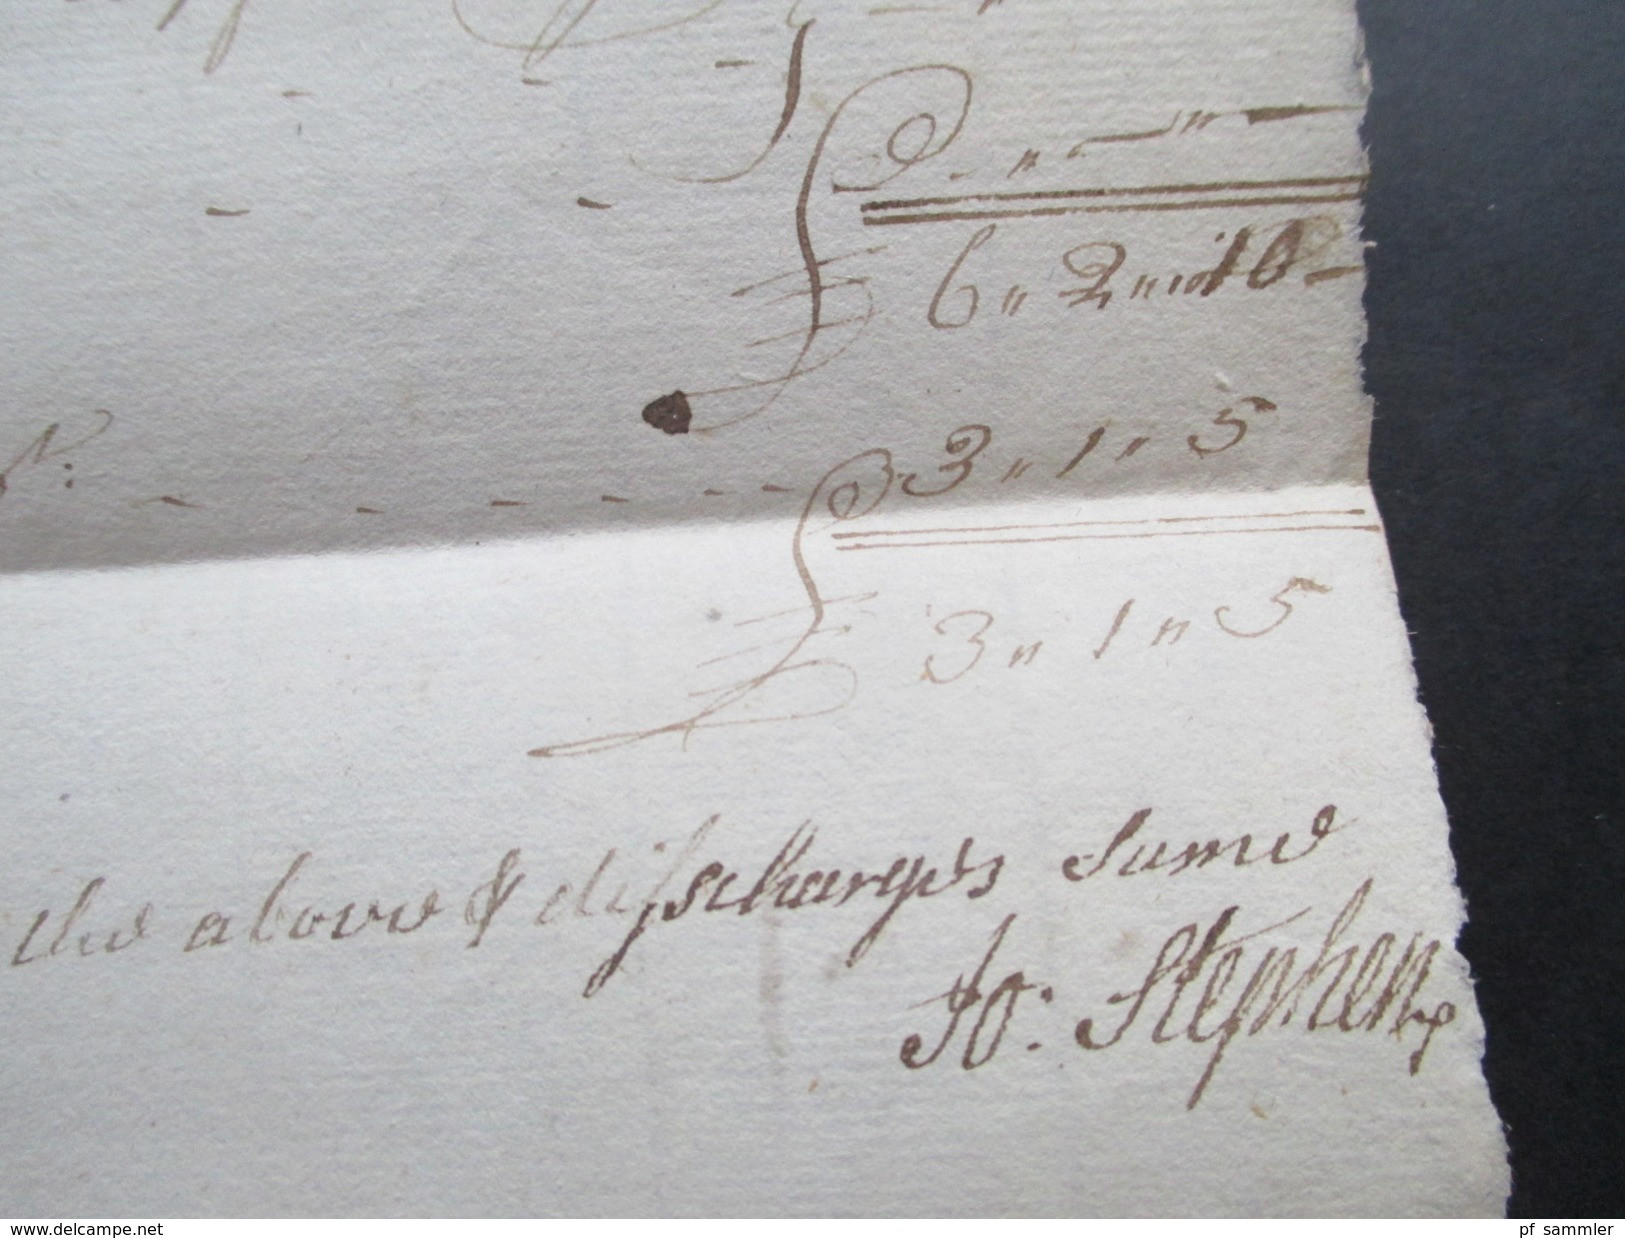 £ 6 " 2 " 10
£ 3 " 1 " 5
£ 3 " 1 " 5
the above & disscharges Same
Jo: Stephens
www.delcampe.net
pf_sammler